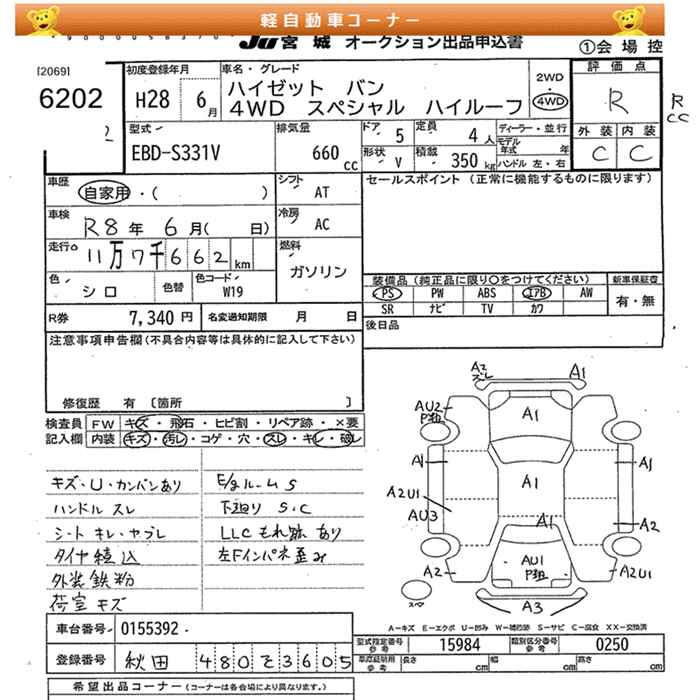 軽自動車コーナー
JU宮城 オークション出品申込書
①会場控
[2069]
6202
初度登録年月
H28 6月
車名・グレード
ハイゼット バン
4WD スペシャル ハイルーフ
2WD
4WD
評価点
R
R
CC
外装 内装
C C
型式
EBD-S331V
排気量
660cc
ドア 5
形状 V
定員 4人
積載 350kg
ディーラー・並行
モデル年式 年
ハンドル 左・右
車歴
自家用・( )
シフト
AT
セールスポイント (正常に機能するものに限ります)
車検
R8年 6月( 日)
冷房
AC
走行
11万7千662km
燃料
ガソリン
色
シロ
色替
色コード
W19
装備品 (純正品に限り〇をつけてください)
新車保証書
PS PW ABS エアB AW
SR ナビ TV カワ
有・無
R券 7,340円
名変通知期限 月 日
後日品
注意事項申告欄(不具合内容等は具体的に記入して下さい)
修復歴 有 〔箇所 〕
検査員記入欄
FW キズ・飛石・ヒビ割・リペア跡・×要
内装 キズ・汚レ・コゲ・穴・スレ・キレ・破レ
キズ・U・カンバンあり
ハンドル スレ
シート キレ・ヤブレ
タイヤ積込
外装鉄粉
荷室キズ
E/gルーム S
下廻り S・C
LLCもれ跡あり
左Fインパネ歪み
A2
ズレ
A1
AU2
P跡
A1
A1
A1
A1
A2U1
AU3
A1
A2
AU1
P跡
A2
A2U1
スペア
A3
A-キズ E-エクボ U-凹み W-補修跡 S-サビ C-腐食 XX-交換済
車台番号 0155392
登録番号 秋田 480 Z 3605
型式指定番号 参考 15984
類別区分番号 参考 0250
車庫証明用 参考
長さ cm
幅 cm
高さ cm
希望出品コーナー (コーナーは各会場により異なります。)